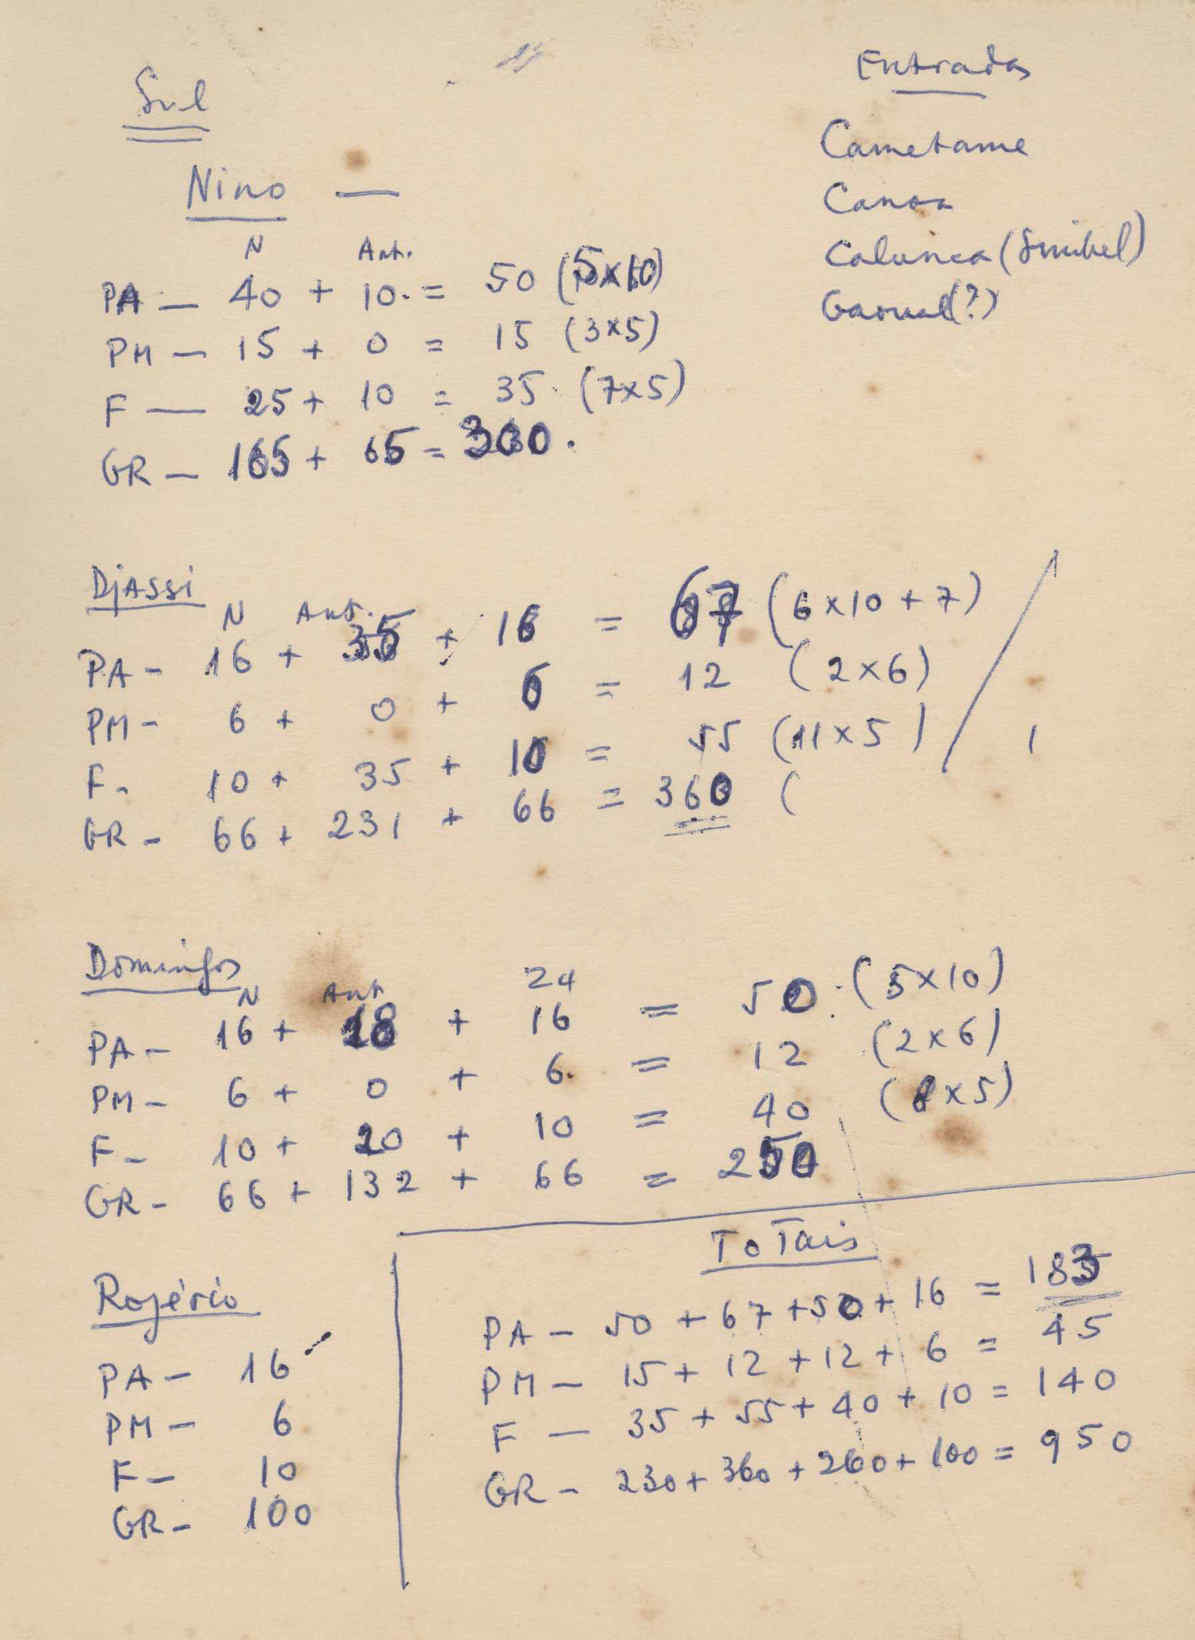 Sul
Nino —
N Ant.
PA — 40 + 10 = 50 (5x10)
PM — 15 + 0 = 15 (3x5)
F — 25 + 10 = 35 (7x5)
GR — 165 + 65 =
Entradas
Cametame
Canoa
Calunca
(?)
Djassi
N Ant.
PA - 16 + 35 + 16 = 67 (6x10+7)
PM - 6 + 0 + 6 = 12 (2x6)
F - 10 + 35 + 10 = 55 (11x5)
GR - 66 + 231 + 66 = 360 (
Domingos
24
N Ant
PA - 16 + 18 + 16 = 50 (5x10)
PM - 6 + 0 + 6 = 12 (2x6)
F - 10 + 20 + 10 = 40 (8x5)
GR - 66 + 132 + 66 = 250
Rogério
PA - 16
PM - 6
F - 10
GR - 100
ToTais
PA - 50 + 67 + 50 + 16 = 183
PM - 15 + 12 + 12 + 6 = 45
F — 35 + 55 + 40 + 10 = 140
GR - 230 + 360 + 260 + 100 = 950